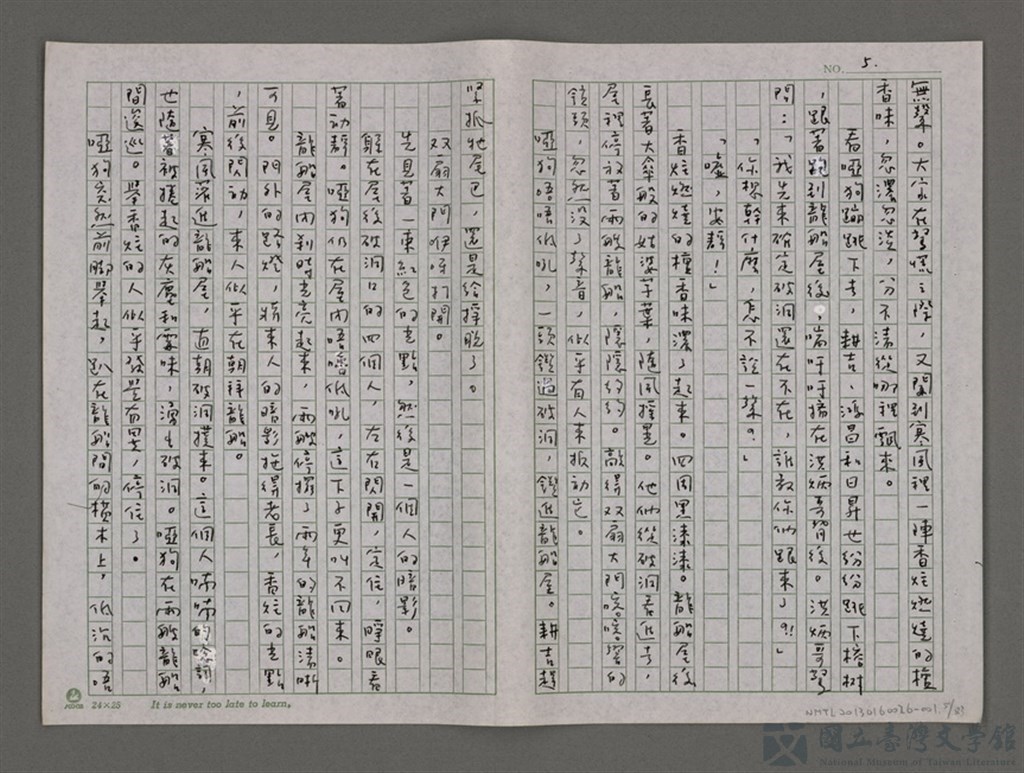 NO. 5.
無聲。大家在驚慌之際，又聞到寒風裡一陣香炷燃燒的檀
香味，忽濃忽淡，分不清從哪裡飄來。
看啞狗蹦跳下去，耕吉、鴻昌和日昇也紛紛跳下榕樹
，跟著跑到龍船屋後，喘吁吁擠在洪炳哥背後。洪炳哥
問：「我先來確定破洞還在不在，誰教你們跟來了？！」
「你想幹什麼，怎不說一聲？」
「噓，安靜！」
香炷燃燒的檀香味濃了起來。四周黑漆漆。龍船屋後
長著大傘般的姑婆芋葉，隨風搖晃。他們從破洞看進去，
屋裡停放著兩艘龍船，隱隱約約。敲得双扇大門嗙嗙響的
鎖頭，忽然沒了聲音，似乎有人來扳動它。
啞狗唔唔低吼，一頭鑽過破洞，鑽進龍船屋。耕吉趕
緊抓牠尾巴，還是給掙脫了。
双扇大門咿呀打開。
先見著一束紅色的光點，然後是一個人的暗影。
躲在屋後破洞口的四個人，左右閃開，定住，睜眼看
著動靜。啞狗仍在屋內唔嚕低吼，這下子更叫不回來。
龍船屋內剎時光亮起來，兩艘停擺了兩年的龍船清晰
可見。門外的路燈，將來人的暗影拖得老長，香炷的光點
，前後閃動，來人似乎在朝拜龍船。
寒風灌進龍船屋，直朝破洞撲來。這個人喃喃的唸詞，
也隨著被捲起的灰塵和霉味，湧出破洞。啞狗在兩艘龍船
間逡巡。舉香炷的人似乎發覺有異，停住了。
啞狗突然前腳舉起，趴在龍船間的橫木上，低沉的唔
24×25 It is never too late to learn.
NMTL20130160026-001.5/83
國立臺灣文學館
National Museum of Taiwan Literature